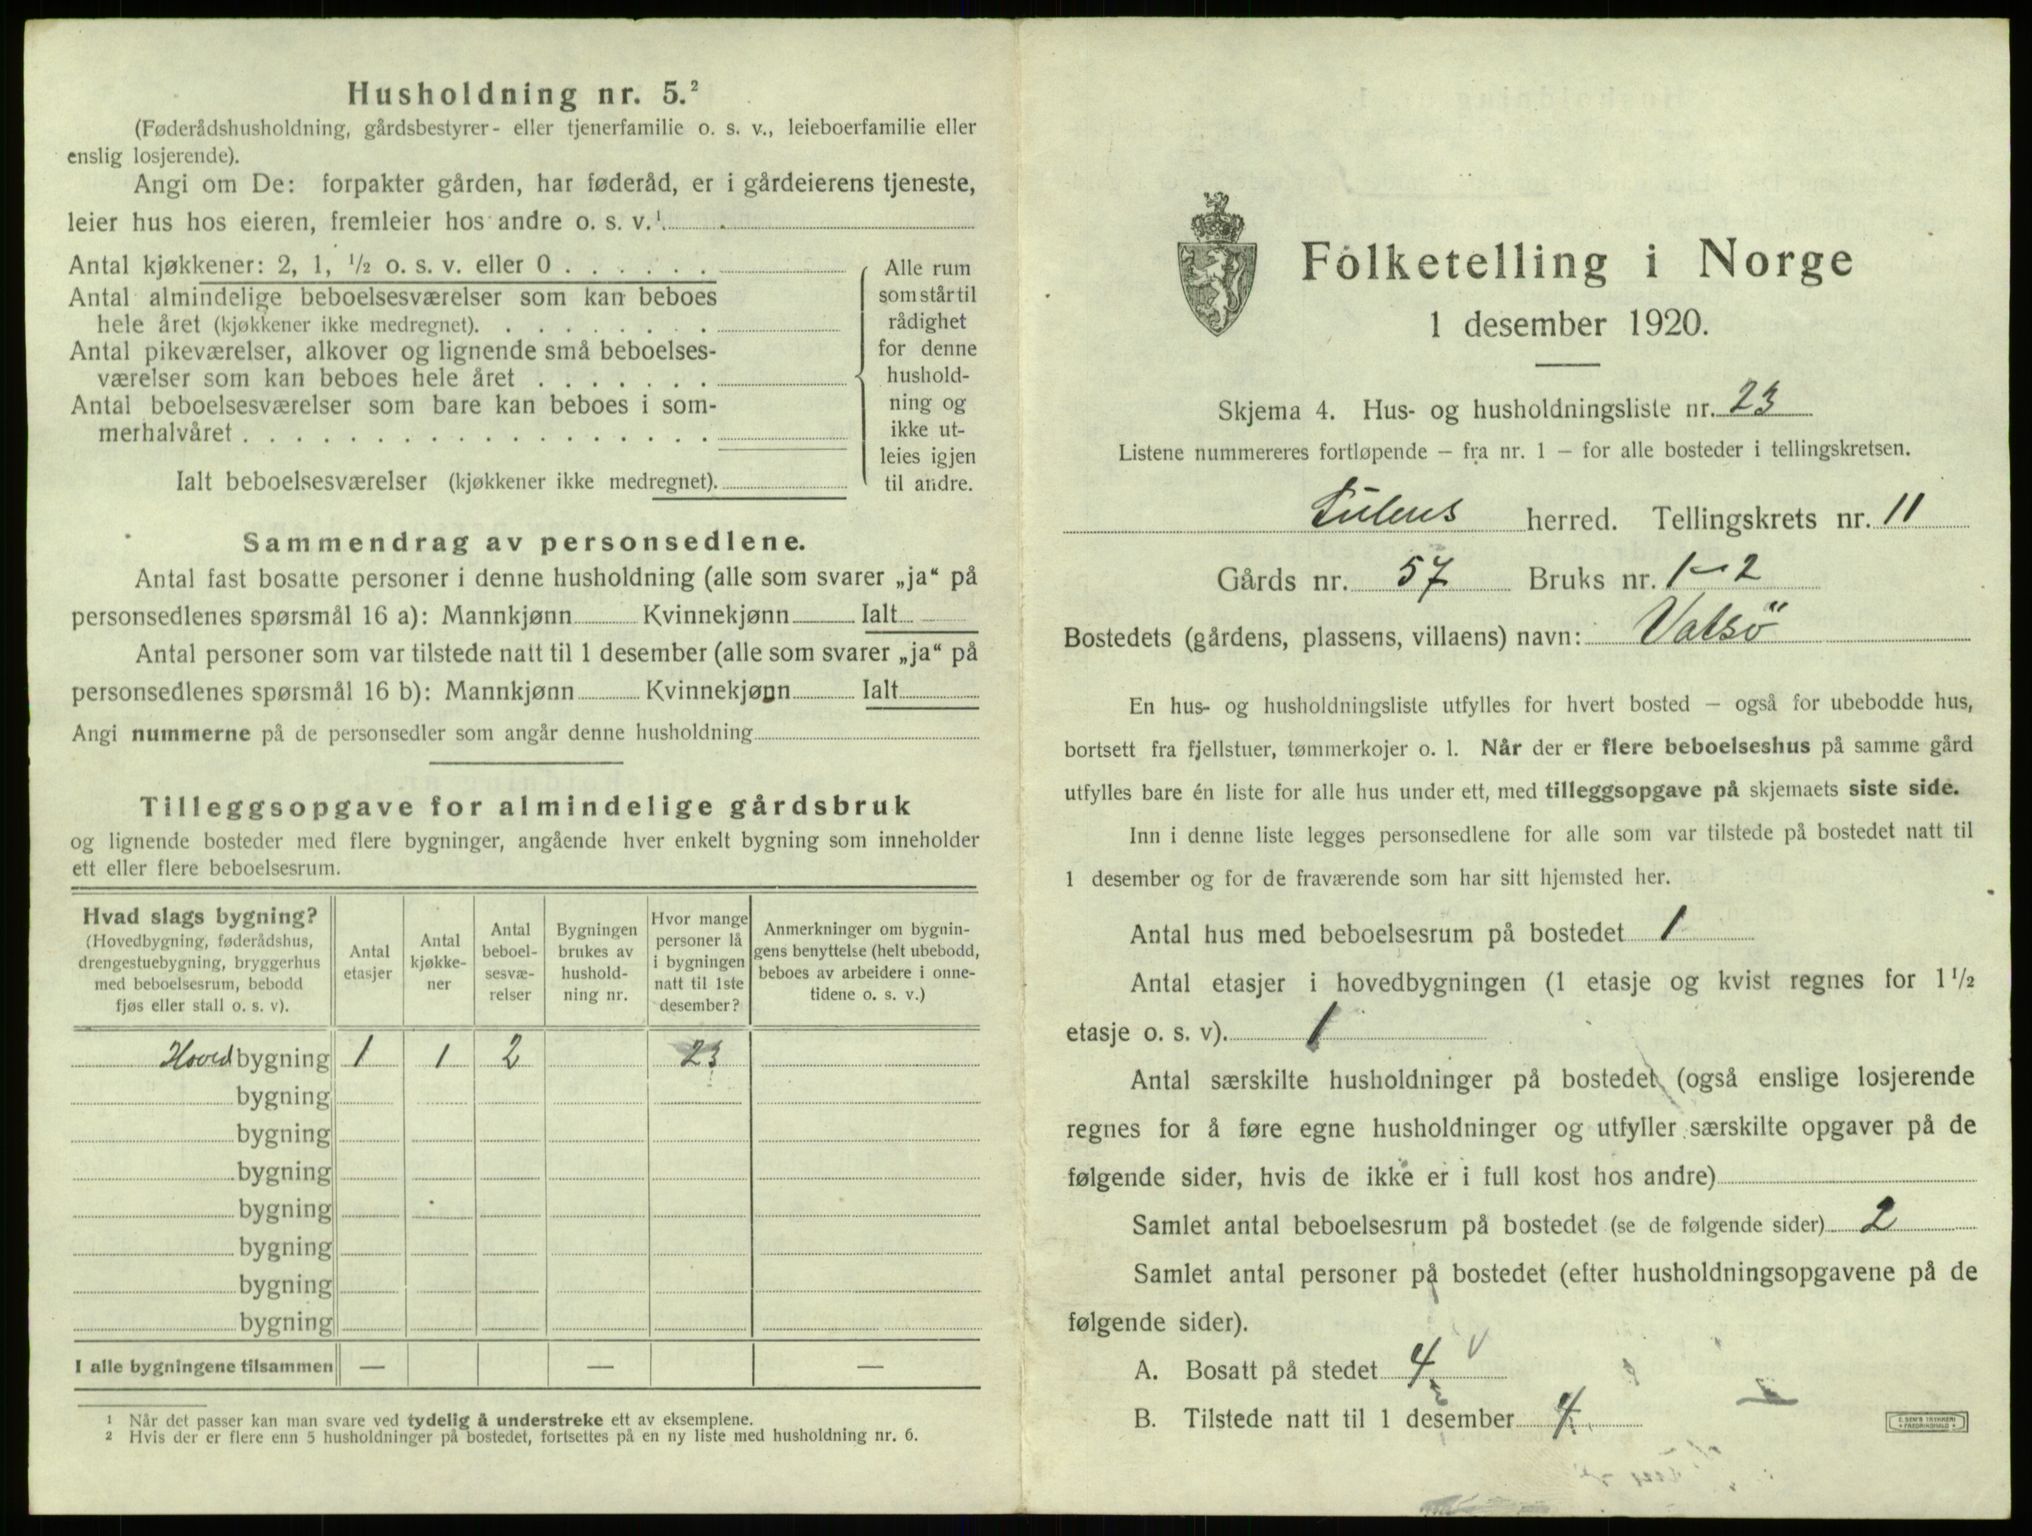 Husholdning nr. 5.²
(Føderådshusholdning, gårdsbestyrer- eller tjenerfamilie o. s. v., leieboerfamilie eller
enslig losjerende).
Angi om De: forpakter gården, har føderåd, er i gårdeierens tjeneste,
leier hus hos eieren, fremleier hos andre o. s. v.¹
Antal kjøkkener: 2, 1, ½ o. s. v. eller 0 . . . . . .
Antal almindelige beboelsesværelser som kan beboes
hele året (kjøkkener ikke medregnet). . . . . . . . .
Antal pikeværelser, alkover og lignende små beboelses-
værelser som kan beboes hele året . . . . . . .
Antal beboelsesværelser som bare kan beboes i som-
merhalvåret . . . . . . . . . . . . . . . . . .
Ialt beboelsesværelser (kjøkkener ikke medregnet).
Alle rum
som står til
rådighet
for denne
hushold-
ning og
ikke ut-
leies igjen
til andre.
Sammendrag av personsedlene.
Antal fast bosatte personer i denne husholdning (alle som svarer „ja“ på
personsedlenes spørsmål 16 a): Mannkjønn Kvinnekjønn Ialt
Antal personer som var tilstede natt til 1 desember (alle som svarer „ja“ på
personsedlenes spørsmål 16 b): Mannkjønn Kvinnekjønn Ialt
Angi nummerne på de personsedler som angår denne husholdning
Tilleggsopgave for almindelige gårdsbruk
og lignende bosteder med flere bygninger, angående hver enkelt bygning som inneholder
ett eller flere beboelsesrum.
Hvad slags bygning?
(Hovedbygning, føderådshus,
drengestuebygning, bryggerhus
med beboelsesrum, bebodd
fjøs eller stall o. s. v).
Antal
etasjer
Antal
kjøkke-
ner
Antal
beboel-
sesvæ-
relser
Bygningen
brukes av
hushold-
ning nr.
Hvor mange
personer lå
i bygningen
natt til 1ste
desember?
Anmerkninger om bygnin-
gens benyttelse (helt ubebodd,
beboes av arbeidere i onne-
tidene o. s. v.)
Hoved bygning 1 1 2 23
bygning
bygning
bygning
bygning
bygning
bygning
bygning
I alle bygningene tilsammen — — —
¹ Når det passer kan man svare ved tydelig å understreke ett av eksemplene.
² Hvis der er flere enn 5 husholdninger på bostedet, fortsettes på en ny liste med husholdning nr. 6.
Folketelling i Norge
1 desember 1920.
Skjema 4. Hus- og husholdningsliste nr. 23
Listene nummereres fortløpende – fra nr. 1 – for alle bosteder i tellingskretsen.
herred. Tellingskrets nr. 11
Gårds nr. 57 Bruks nr. 1-2
Bostedets (gårdens, plassens, villaens) navn: Vatsö
En hus- og husholdningsliste utfylles for hvert bosted – også for ubebodde hus,
bortsett fra fjellstuer, tømmerkojer o. l. Når der er flere beboelseshus på samme gård
utfylles bare én liste for alle hus under ett, med tilleggsopgave på skjemaets siste side.
Inn i denne liste legges personsedlene for alle som var tilstede på bostedet natt til
1 desember og for de fraværende som har sitt hjemsted her.
Antal hus med beboelsesrum på bostedet 1
Antal etasjer i hovedbygningen (1 etasje og kvist regnes for 1½
etasje o. s. v). 1
Antal særskilte husholdninger på bostedet (også enslige losjerende
regnes for å føre egne husholdninger og utfyller særskilte opgaver på de
følgende sider, hvis de ikke er i full kost hos andre)
Samlet antal beboelsesrum på bostedet (se de følgende sider) 2
Samlet antal personer på bostedet (efter husholdningsopgavene på de
følgende sider).
A. Bosatt på stedet 4
B. Tilstede natt til 1 desember 4